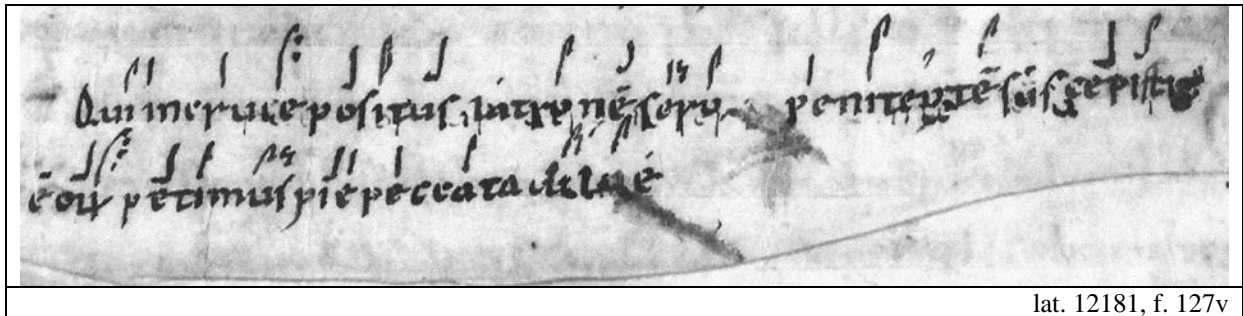 Qui incruce positus latronē sero penitentē suscepisti
eoꝝ petimus pie peccata dilue
lat. 12181, f. 127v